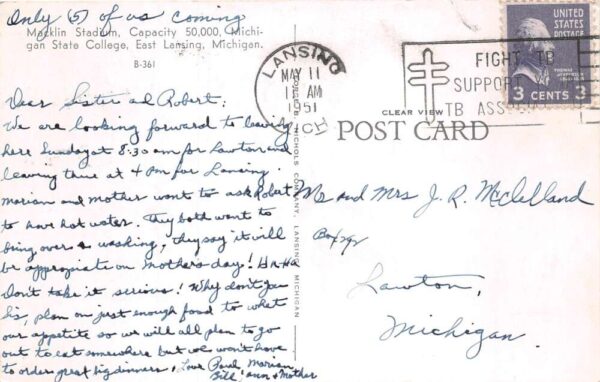 Only (5) of us coming
Macklin Stadium, Capacity 50,000, Michi-
gan State College, East Lansing, Michigan.
B-361
Dear Sister and Robert:
We are looking forward to leaving
here Sunday at 8:30 am for Lawton and
leaving there at 4 Pm for Lansing.
Marian and mother want to ask Robert
to have hot water. They both want to
bring over a washing, they say it will
be appropiate on Mother's day! Ha Ha
Don't take it serious! Why don't you
plan on just enough food to whet
our appetite so we will all plan to go
out to eat somewhere but we won't have
to order great big dinners. Love Paul, Marian,
Bill, Ann & Mother
LANSING
MAY 11
AM
1951
MICH
FIGHT TB
SUPPORT
TB ASS
UNITED
STATES
POSTAGE
THOMAS
JEFFERSON
3 CENTS 3
CLEAR VIEW
POST CARD
NICHOLS COMPANY, LANSING, MICHIGAN
Mr and Mrs J. R. McClelland
Box
Lawton,
Michigan.